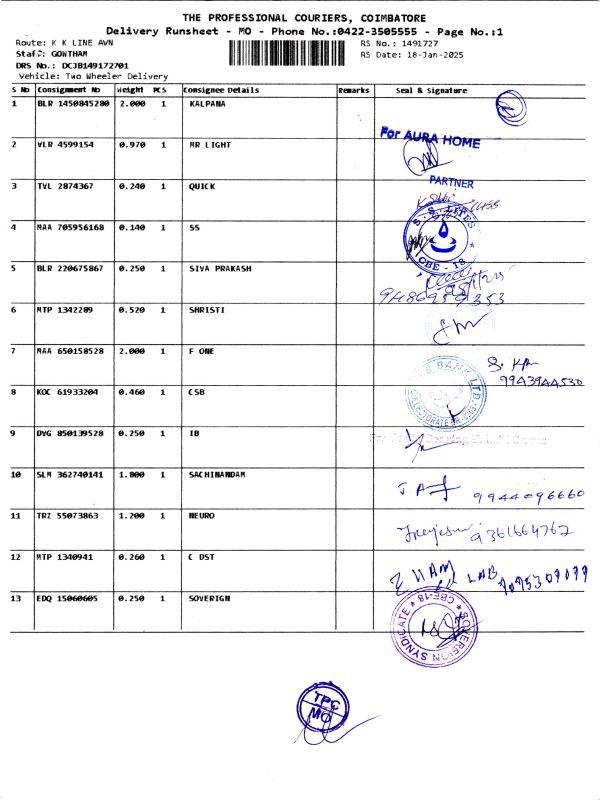 THE PROFESSIONAL COURIERS, COIMBATORE
Delivery Runsheet - MO - Phone No.:0422-3505555 - Page No.:1
Route: K K LINE AVN
RS No.: 1491727
Staff: GOWTHAM
RS Date: 18-Jan-2025
DRS No.: DCJB149172701
Vehicle: Two Wheeler Delivery
S No Consignment No Weight PCS Consignee Details Remarks Seal & Signature
1 BLR 1450845280 2.000 1 KALPANA
For AURA HOME
2 VLR 4599154 0.970 1 MR LIGHT
PARTNER
3 TVL 2874367 0.240 1 QUICK
4 MAA 705956168 0.140 1 SS
CBE - 18
5 BLR 220675867 0.250 1 SIVA PRAKASH
9486959353
6 MTP 1342289 0.520 1 SHRISTI
7 MAA 650158528 2.000 1 F ONE
9943944530
8 KOC 61933204 0.460 1 CSB
BANK LTD.
9 DVG 850139528 0.250 1 IB
10 SLM 362740141 1.800 1 SACHINANDAM
9944096660
11 TRZ 55073863 1.200 1 NEURO
9361664762
12 MTP 1340941 0.260 1 C DST
LAB
13 EDQ 15060605 0.250 1 SOVERIGN
SOVEREIGN SYNDICATE
CBE-18
TPC
MO